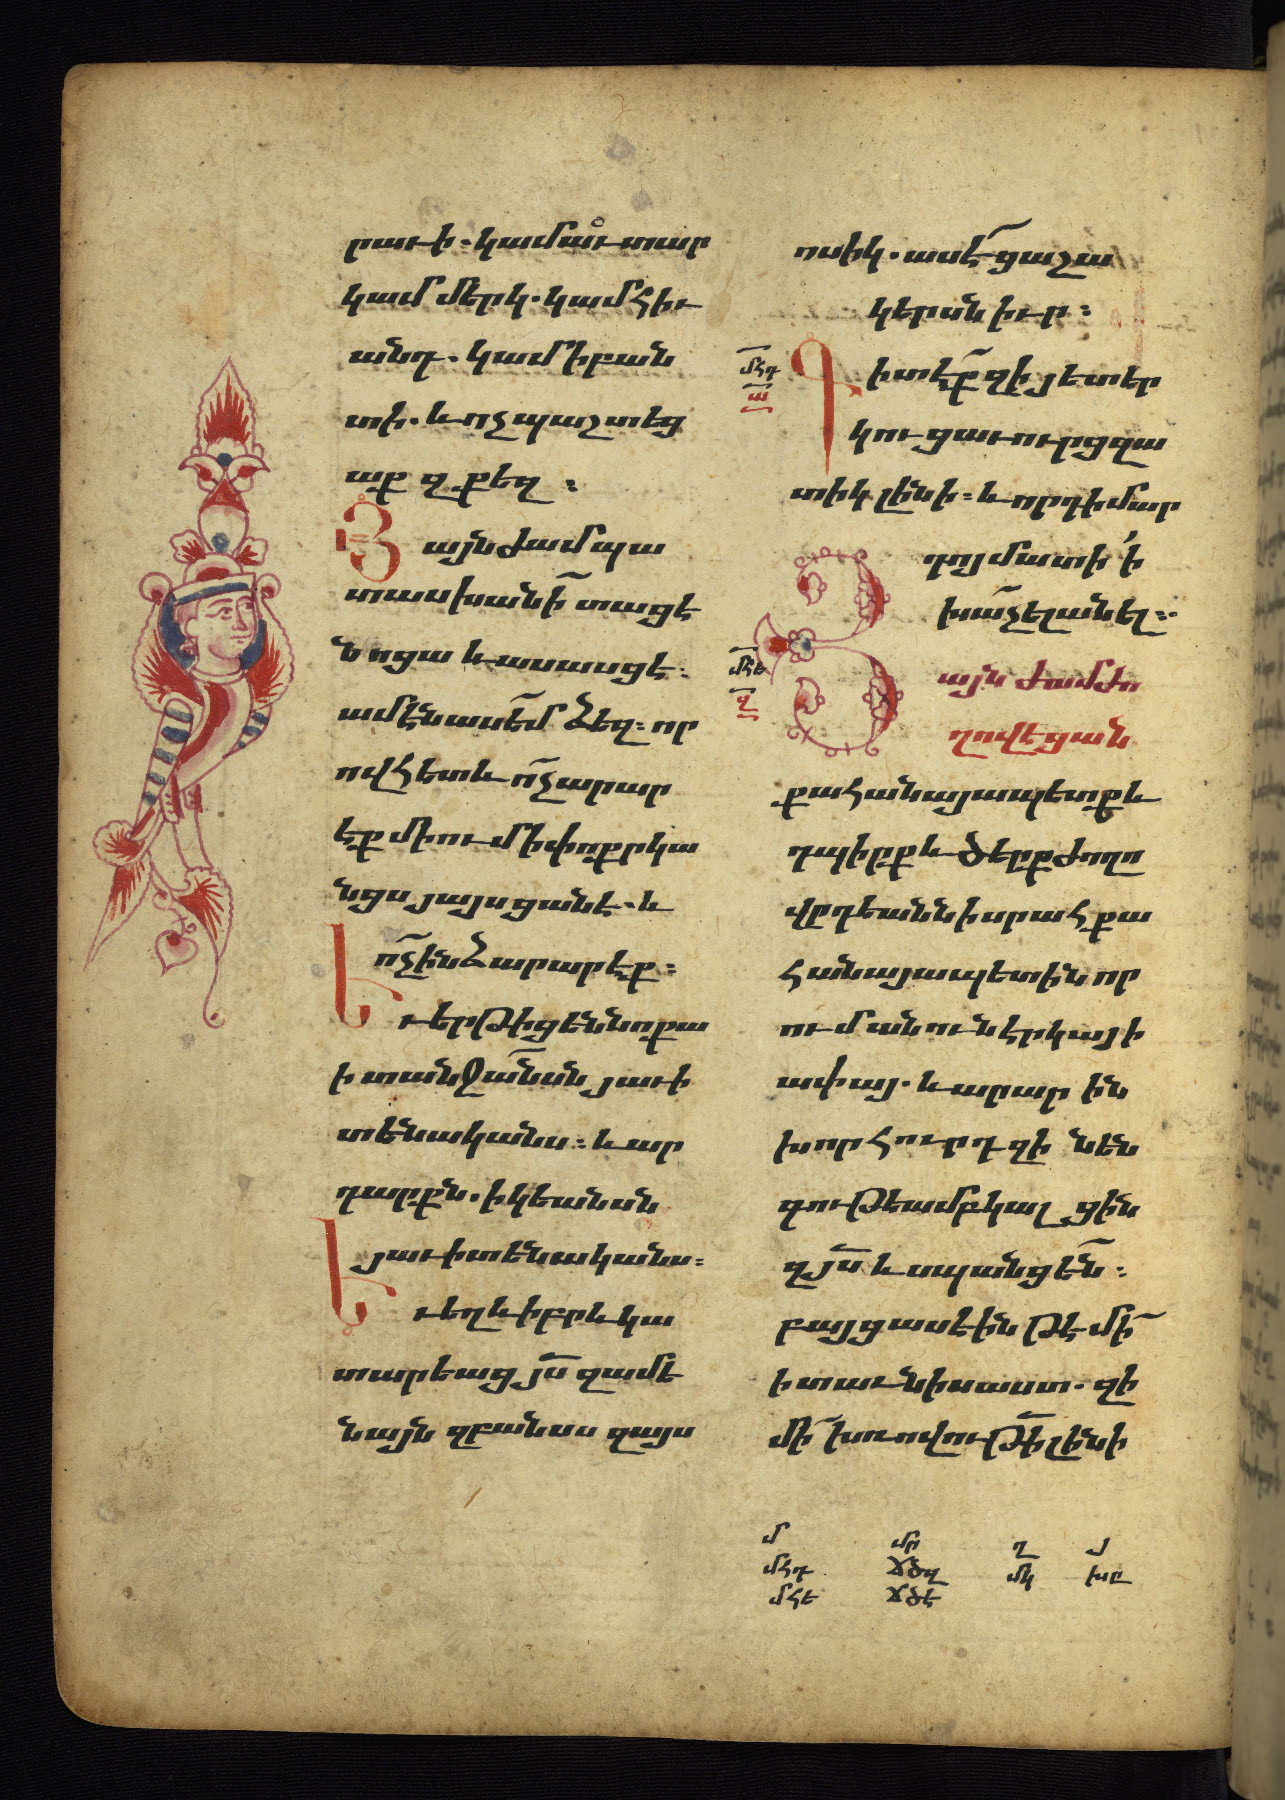 րաւի. կամ աւտար
կամ մերկ. կամ հիւ
անդ. կամ ի բան
տի. և ոչ պաշտեց
աք զքեզ :
Յայնժամ պա
տասխանի տացէ
նոցա և ասասցէ.
ամէն ասեմ ձեզ: որ
ովհետև ոչ արար
էք միում ի փոքրկա
նցս յայսցանէ. և
ոչ ինձ արարէք:
Եւ երթիցեն նոքա
ի տանջանսն յաւի
տենականս: և ար
դարքն. ի կեանսն
յաւիտենականս:
Եւ եղև իբրև կա
տարեաց յս զամե
նայն զբանսս զայս
ոսիկ. ասէ ցաշա
կերտսն իւր:
մհդ
ա
Գիտէք զի յետ եր
կուց աւուրց զա
տիկ լինի: և որդի մար
դոյ մատնի ի
խաչ ելանել:
մհե
զ
Յայնժամ ժո
ղովեցան
քահանայապետքն
դպիրք և ծերք ժողո
վրդեանն ի սրահ քա
հանայապետին որ
ում անուն էր կայի
ափայ. և արարին
խորհուրդ զի նեն
գութեամբ կալցին
զյս և սպանցեն:
բայց ասէին թէ մի
ի տաւնիս աստ. զի
մի խռովութի լինի
մ մր ղ յ
մհդ ճծզ մկ խը
մհե ճծէ